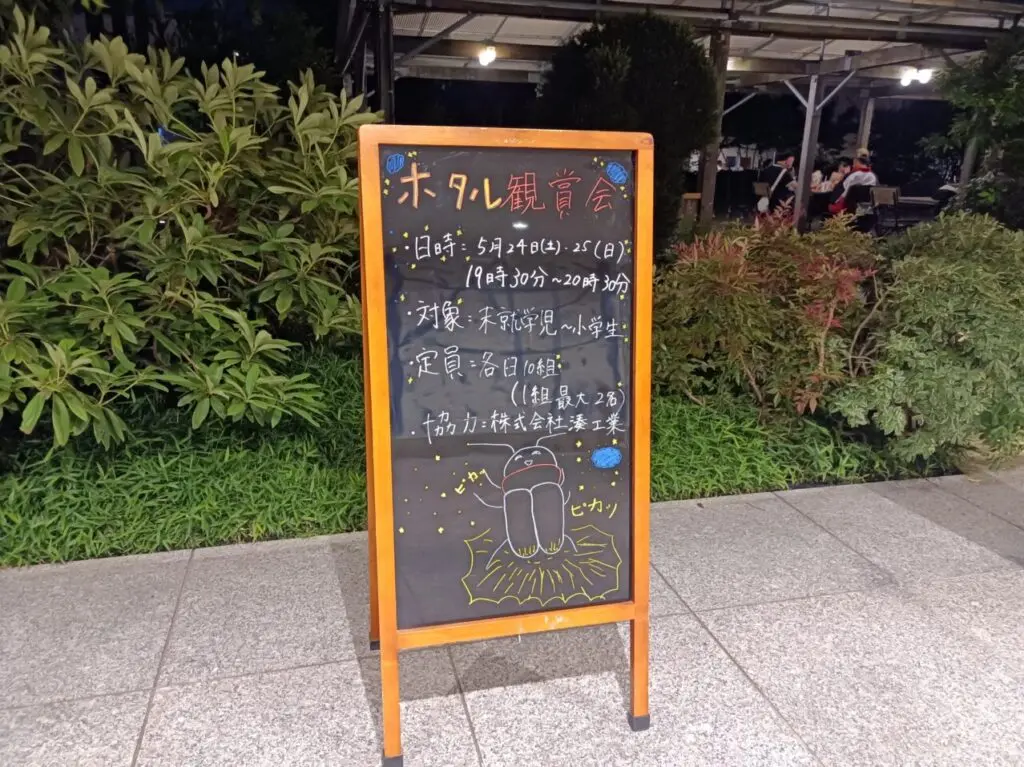 ホタル観賞会
・日時：5月24日(土)・25(日)
19時30分～20時30分
・対象：未就学児～小学生
・定員：各日10組
(1組最大2名)
・協力：株式会社湊工業
ピカッ
ピカッ